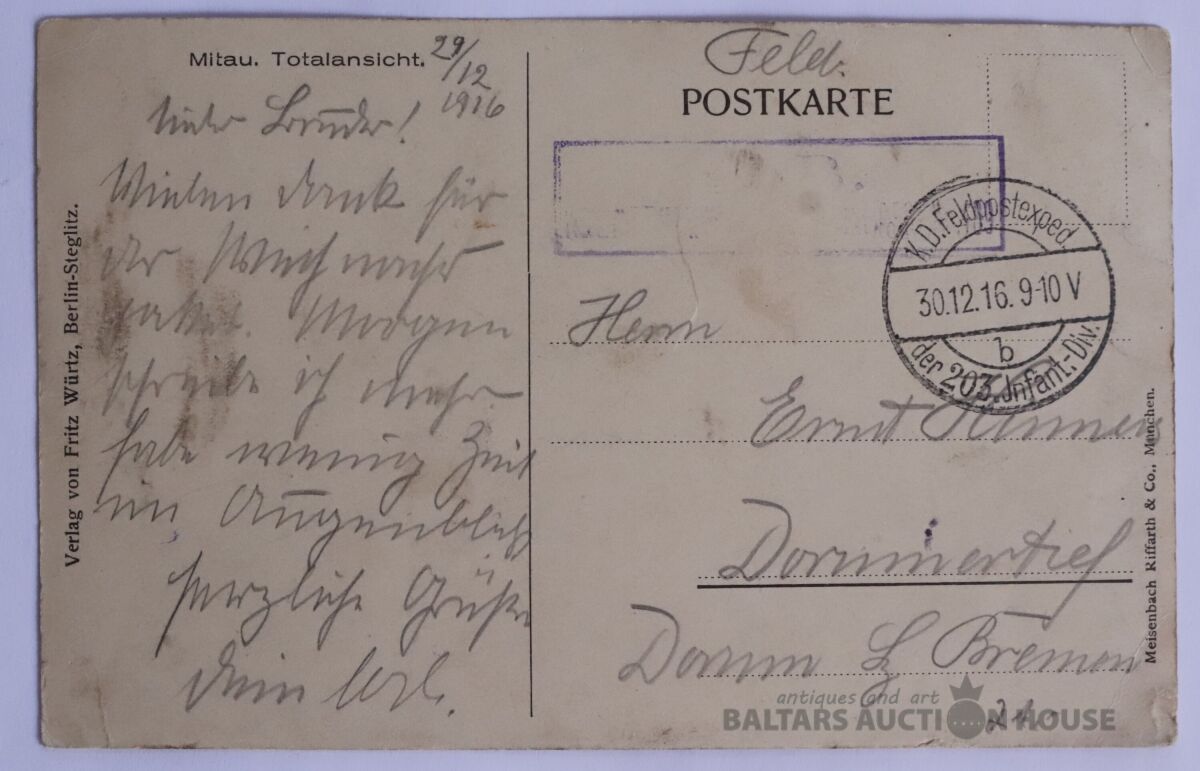 Mitau. Totalansicht.
29/12
1916
Lieber Bruder!
Vielen Dank für
der Weihnachts
paket. Morgen
schreibe ich mehr
habe wenig Zeit
im Augenblick
herzliche Grüße
Dein
Verlag von Fritz Würtz, Berlin-Steglitz.
Feld.
POSTKARTE
K.D.Feldpostexped.
30.12.16. 9-10 V
b
der 203. Infant.-Div.
Herrn
Ernst
Dornumertief
Dornum Bz Bremen
21.
Meisenbach Riffarth & Co., München.
antiques and art
BALTARS AUCTION HOUSE